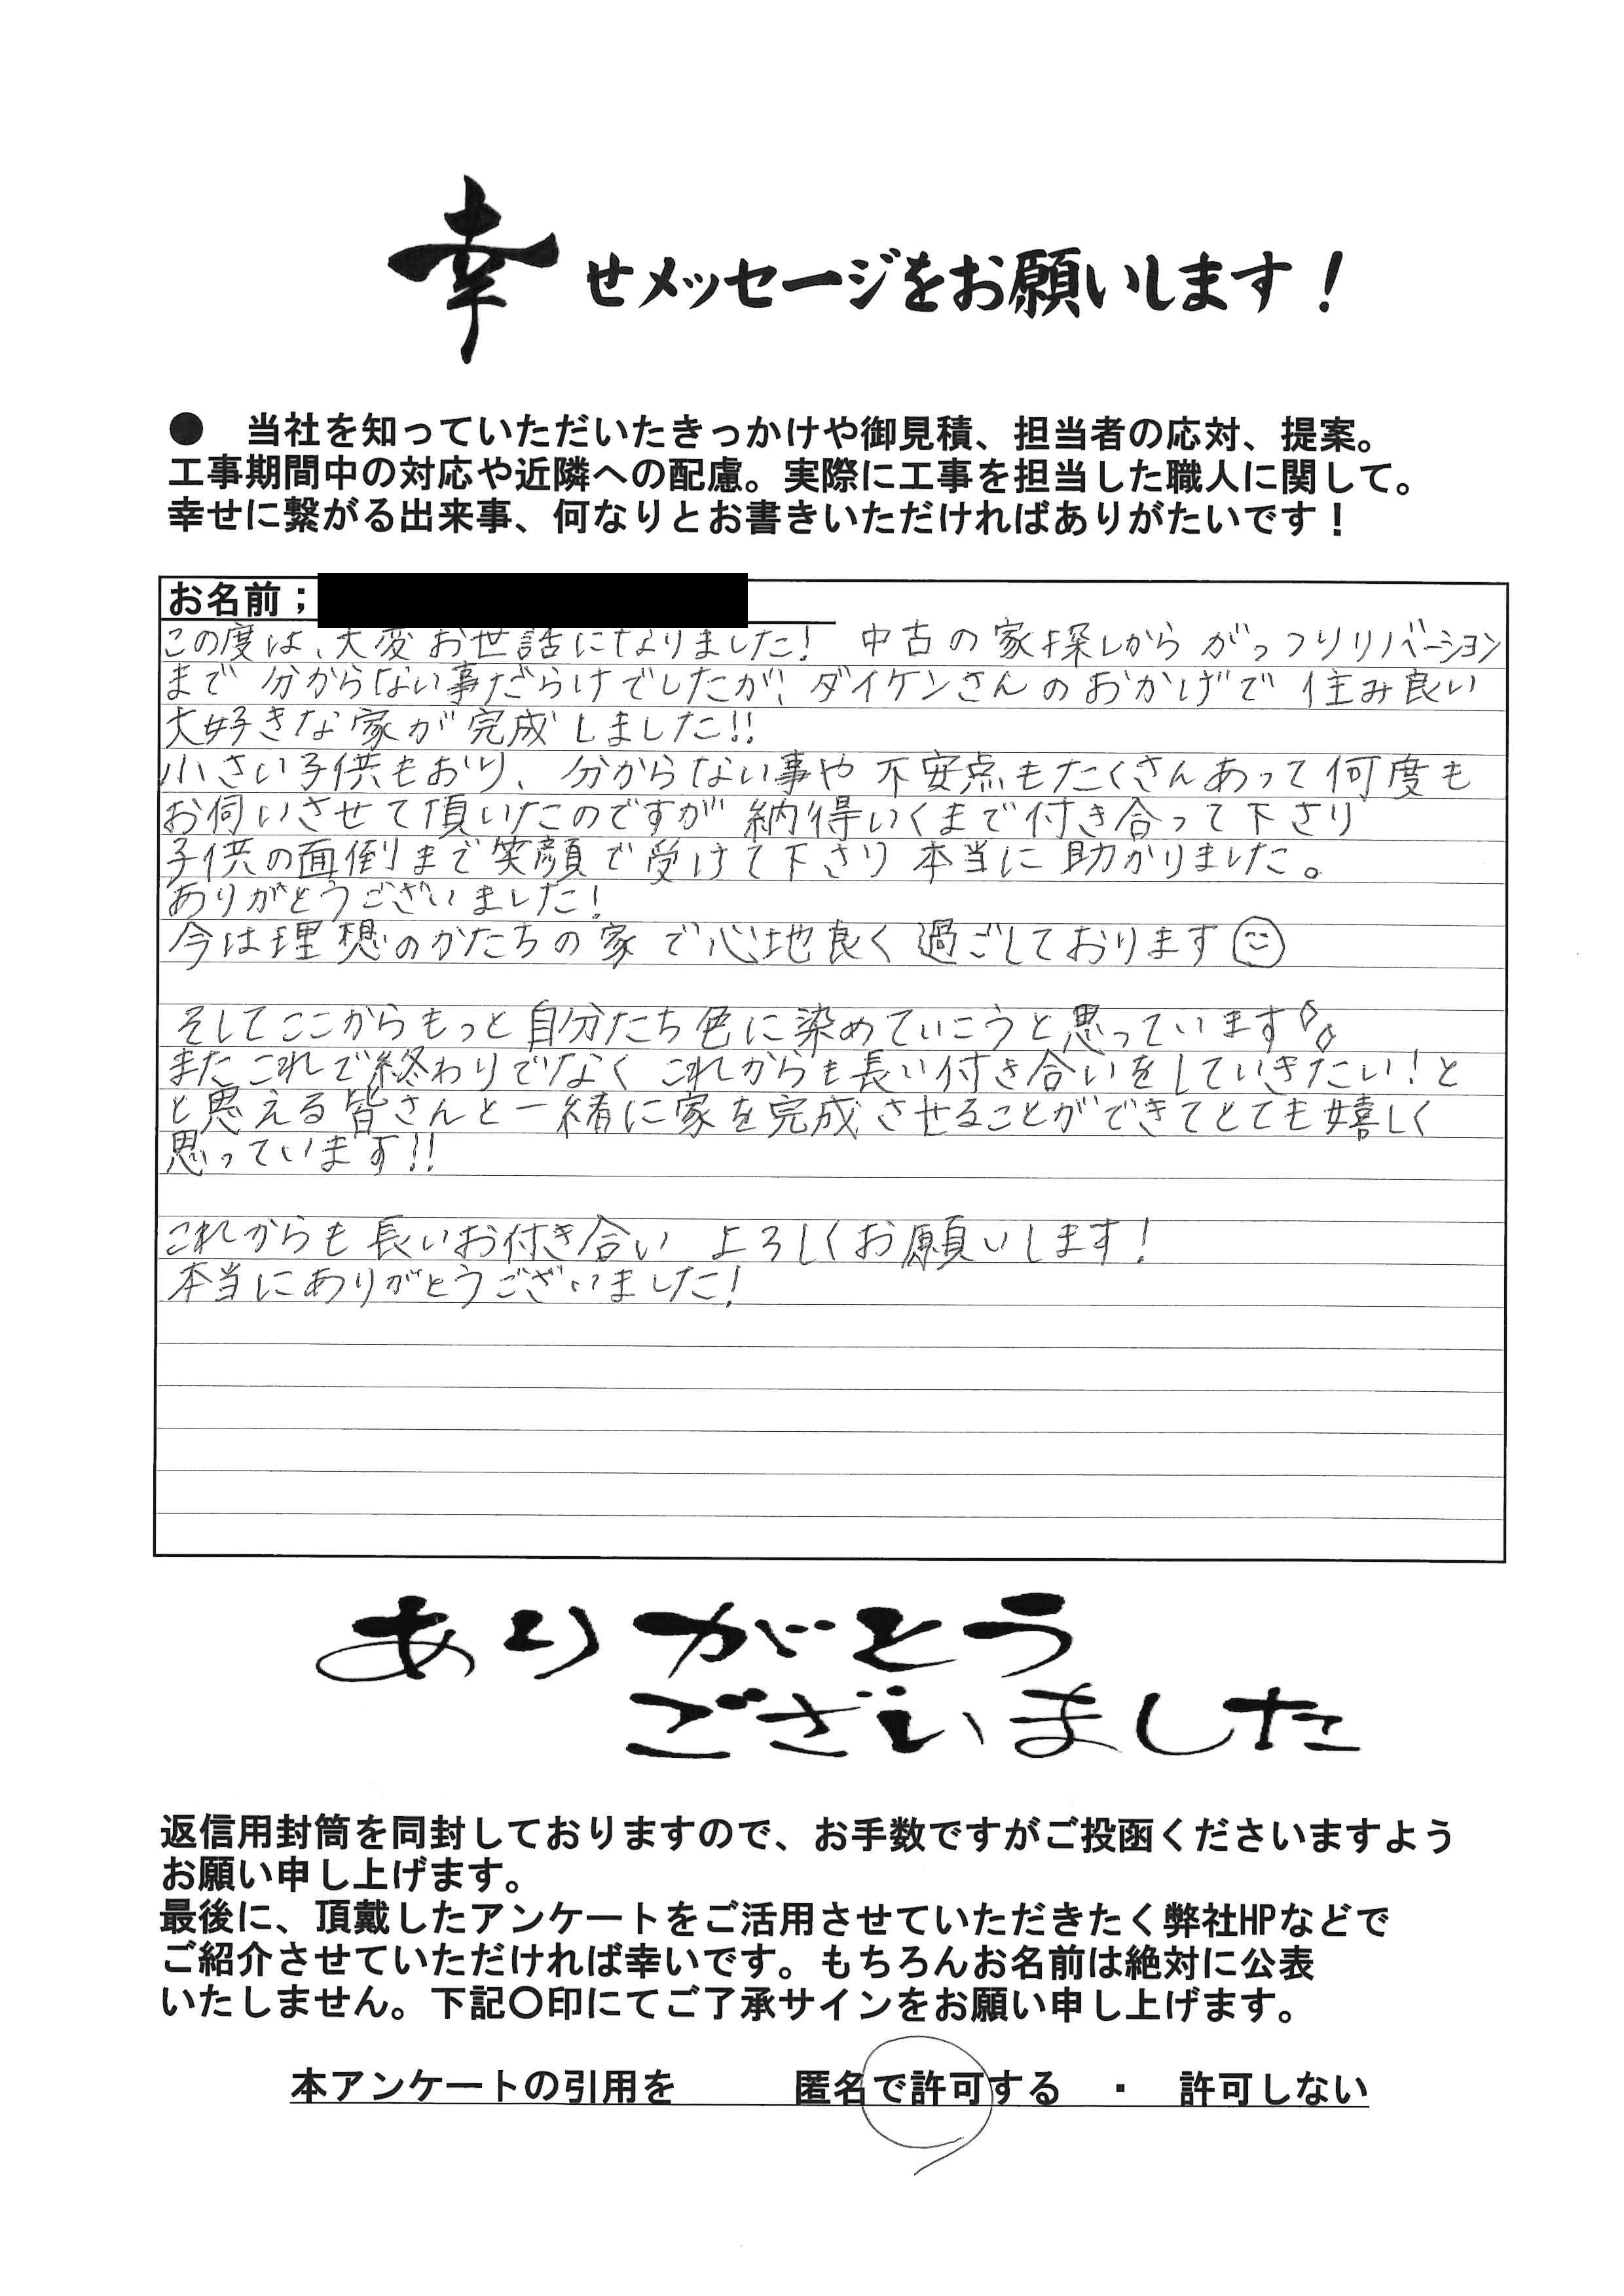 幸せメッセージをお願いします！
●　当社を知っていただいたきっかけや御見積、担当者の応対、提案。
工事期間中の対応や近隣への配慮。実際に工事を担当した職人に関して。
幸せに繋がる出来事、何なりとお書きいただければありがたいです！
お名前；
この度は、大変お世話になりました！ 中古の家探しからがっつりリノベーション
まで 分からない事だらけでしたが、ダイケンさんのおかげで 住み良い
大好きな家が完成しました!!
小さい子供もおり、分からない事や不安点もたくさんあって何度も
お伺いさせて頂いたのですが 納得いくまで付き合って下さり
子供の面倒まで笑顔で受けて下さり 本当に助かりました。
ありがとうございました！
今は理想のかたちの家で心地良く過ごしております☺
そしてここからもっと自分たち色に染めていこうと思っています
またこれで終わりでなく これからも長い付き合いをしていきたい！と
と思える皆さんと一緒に家を完成させることができてとても嬉しく
思っています!!
これからも長いお付き合い よろしくお願いします！
本当にありがとうございました！
ありがとう
ございました
返信用封筒を同封しておりますので、お手数ですがご投函くださいますよう
お願い申し上げます。
最後に、頂戴したアンケートをご活用させていただきたく弊社HPなどで
ご紹介させていただければ幸いです。もちろんお名前は絶対に公表
いたしません。下記〇印にてご了承サインをお願い申し上げます。
本アンケートの引用を　　匿名で許可する　・　許可しない